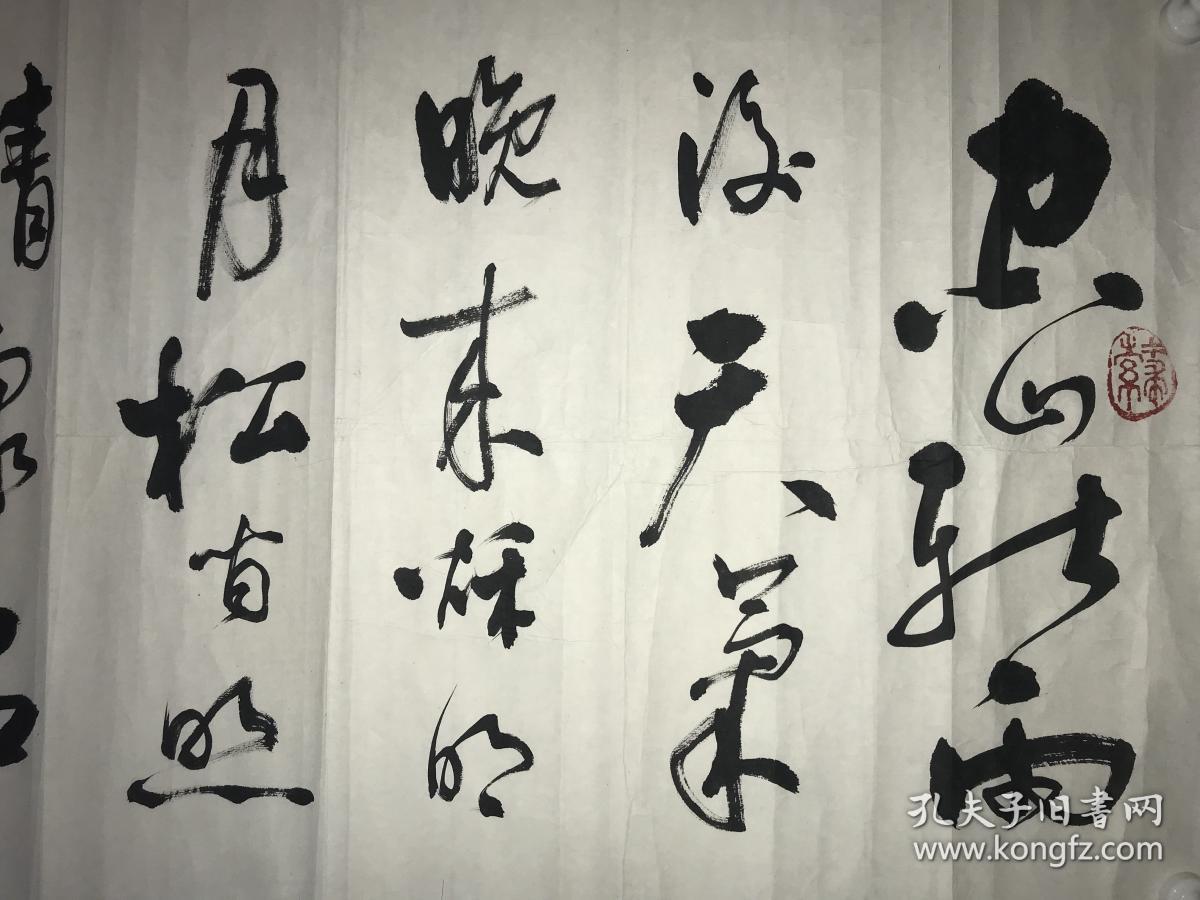 空山新雨
後天氣
晚来秋明
月松間照
清泉石
孔夫子旧书网
www.kongfz.com